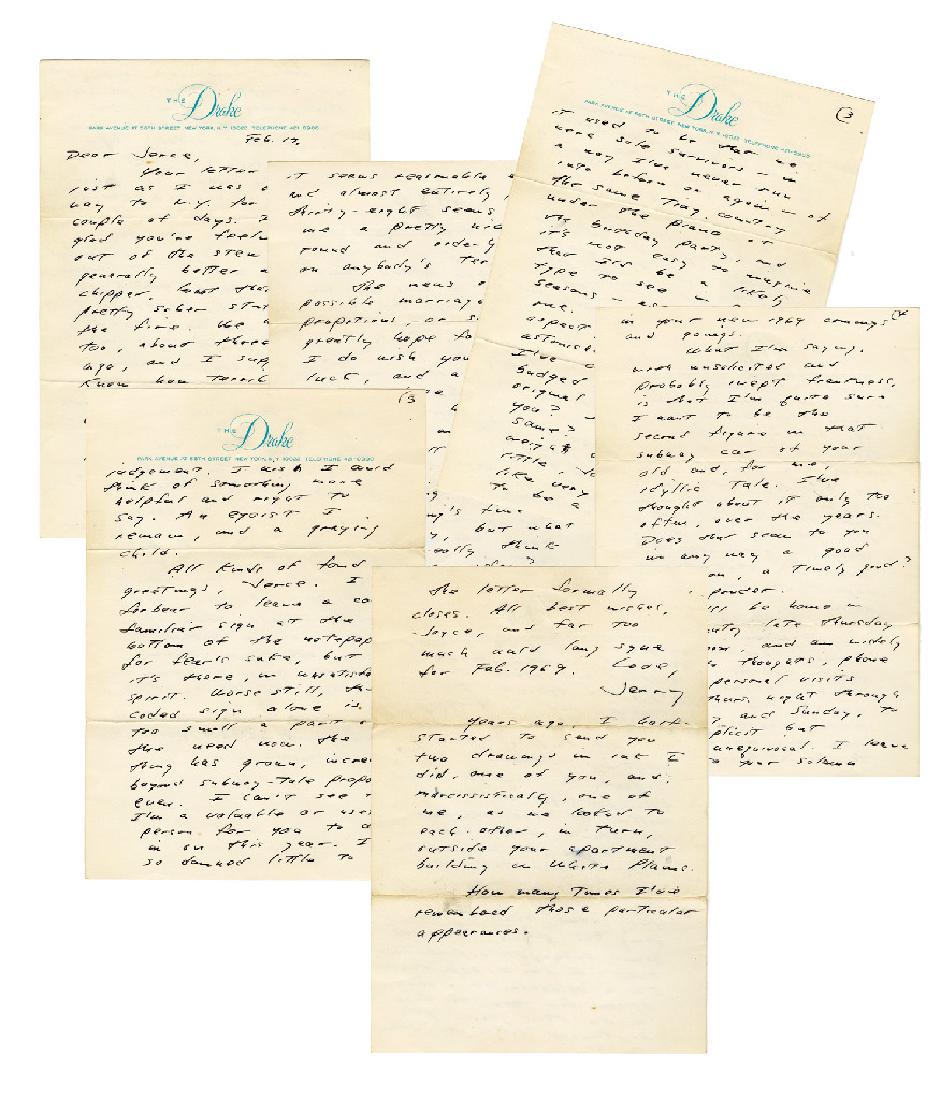 THE Drake
PARK AVENUE AT 56TH STREET NEW YORK, N.Y. 10022 TELEPHONE 421-0900
Feb. 14,
Dear Joyce,
Your letter
just as I was
way to N.Y. for
couple of days.
glad you're feeling
out of the stew
generally better
chipper.
pretty sober
the fire. We
too, about three
ago, and I
know how
it seems reasonable
and almost entirely
thirty-eight seems
me a pretty
round and orderly
on anybody's
The news
possible marriage
propitious, or
greatly hope for
I do wish you
luck, and a
3
THE Drake
PARK AVENUE AT 56TH STREET NEW YORK, N.Y. 10022 TELEPHONE 421-0900
it used to be that we
were sole survivors – in
a way I've never run
into before or again – of
the same tiny country
under the piano or
the birthday party, and
it's not easy to imagine
that it'd be a likely
type to see in
seasons –
me.
aspect
I've
budged
original
you?
same?
might
like very
to be a
time
, but what
really think
4
in your new 1969 comings
and goings.
What I'm saying,
with unsolicited and
probably inept frankness,
is that I'm quite sure
I want to be the
second figure in that
subway car of your
old and, for me,
idyllic tale. I've
thought about it only too
often, over the years.
Does that seem to you
in any way a good
on, a timely good?
ponder.
be home in
late Thursday
, and widely
to thoughts, phone
personal visits
Thurs. night through
and Sunday, to
but
unequivocal. I leave
to your
5
THE Drake
PARK AVENUE AT 56TH STREET NEW YORK, N.Y. 10022 TELEPHONE 421-0900
judgement. I wish I could
think of something more
helpful and right to
say. An egoist I
remain, and a graying
child.
All kinds of fond
greetings, Joyce. I
forbear to leave a
familiar sign at the
bottom of the notepaper
for fear's sake, but
it's there, in
spirit. Worse still, the
coded sign alone is
too small a part
the need now. The
thing has grown,
beyond subway-tale
even. I can't see
I'm a valuable or
person for you to
in on this year. I
so damned little to
The letter formally
closes. All best wishes,
Joyce, and far too
much auld lang syne
for Feb. 1969. Love,
Jerry
Years ago, I
started to send you
two drawings in ink I
did, one of you, and,
narcissistically, one of
me, as we looked to
each other, in turn,
outside your apartment
building in White Plains.
How many times I've
remembered those particular
appearances.